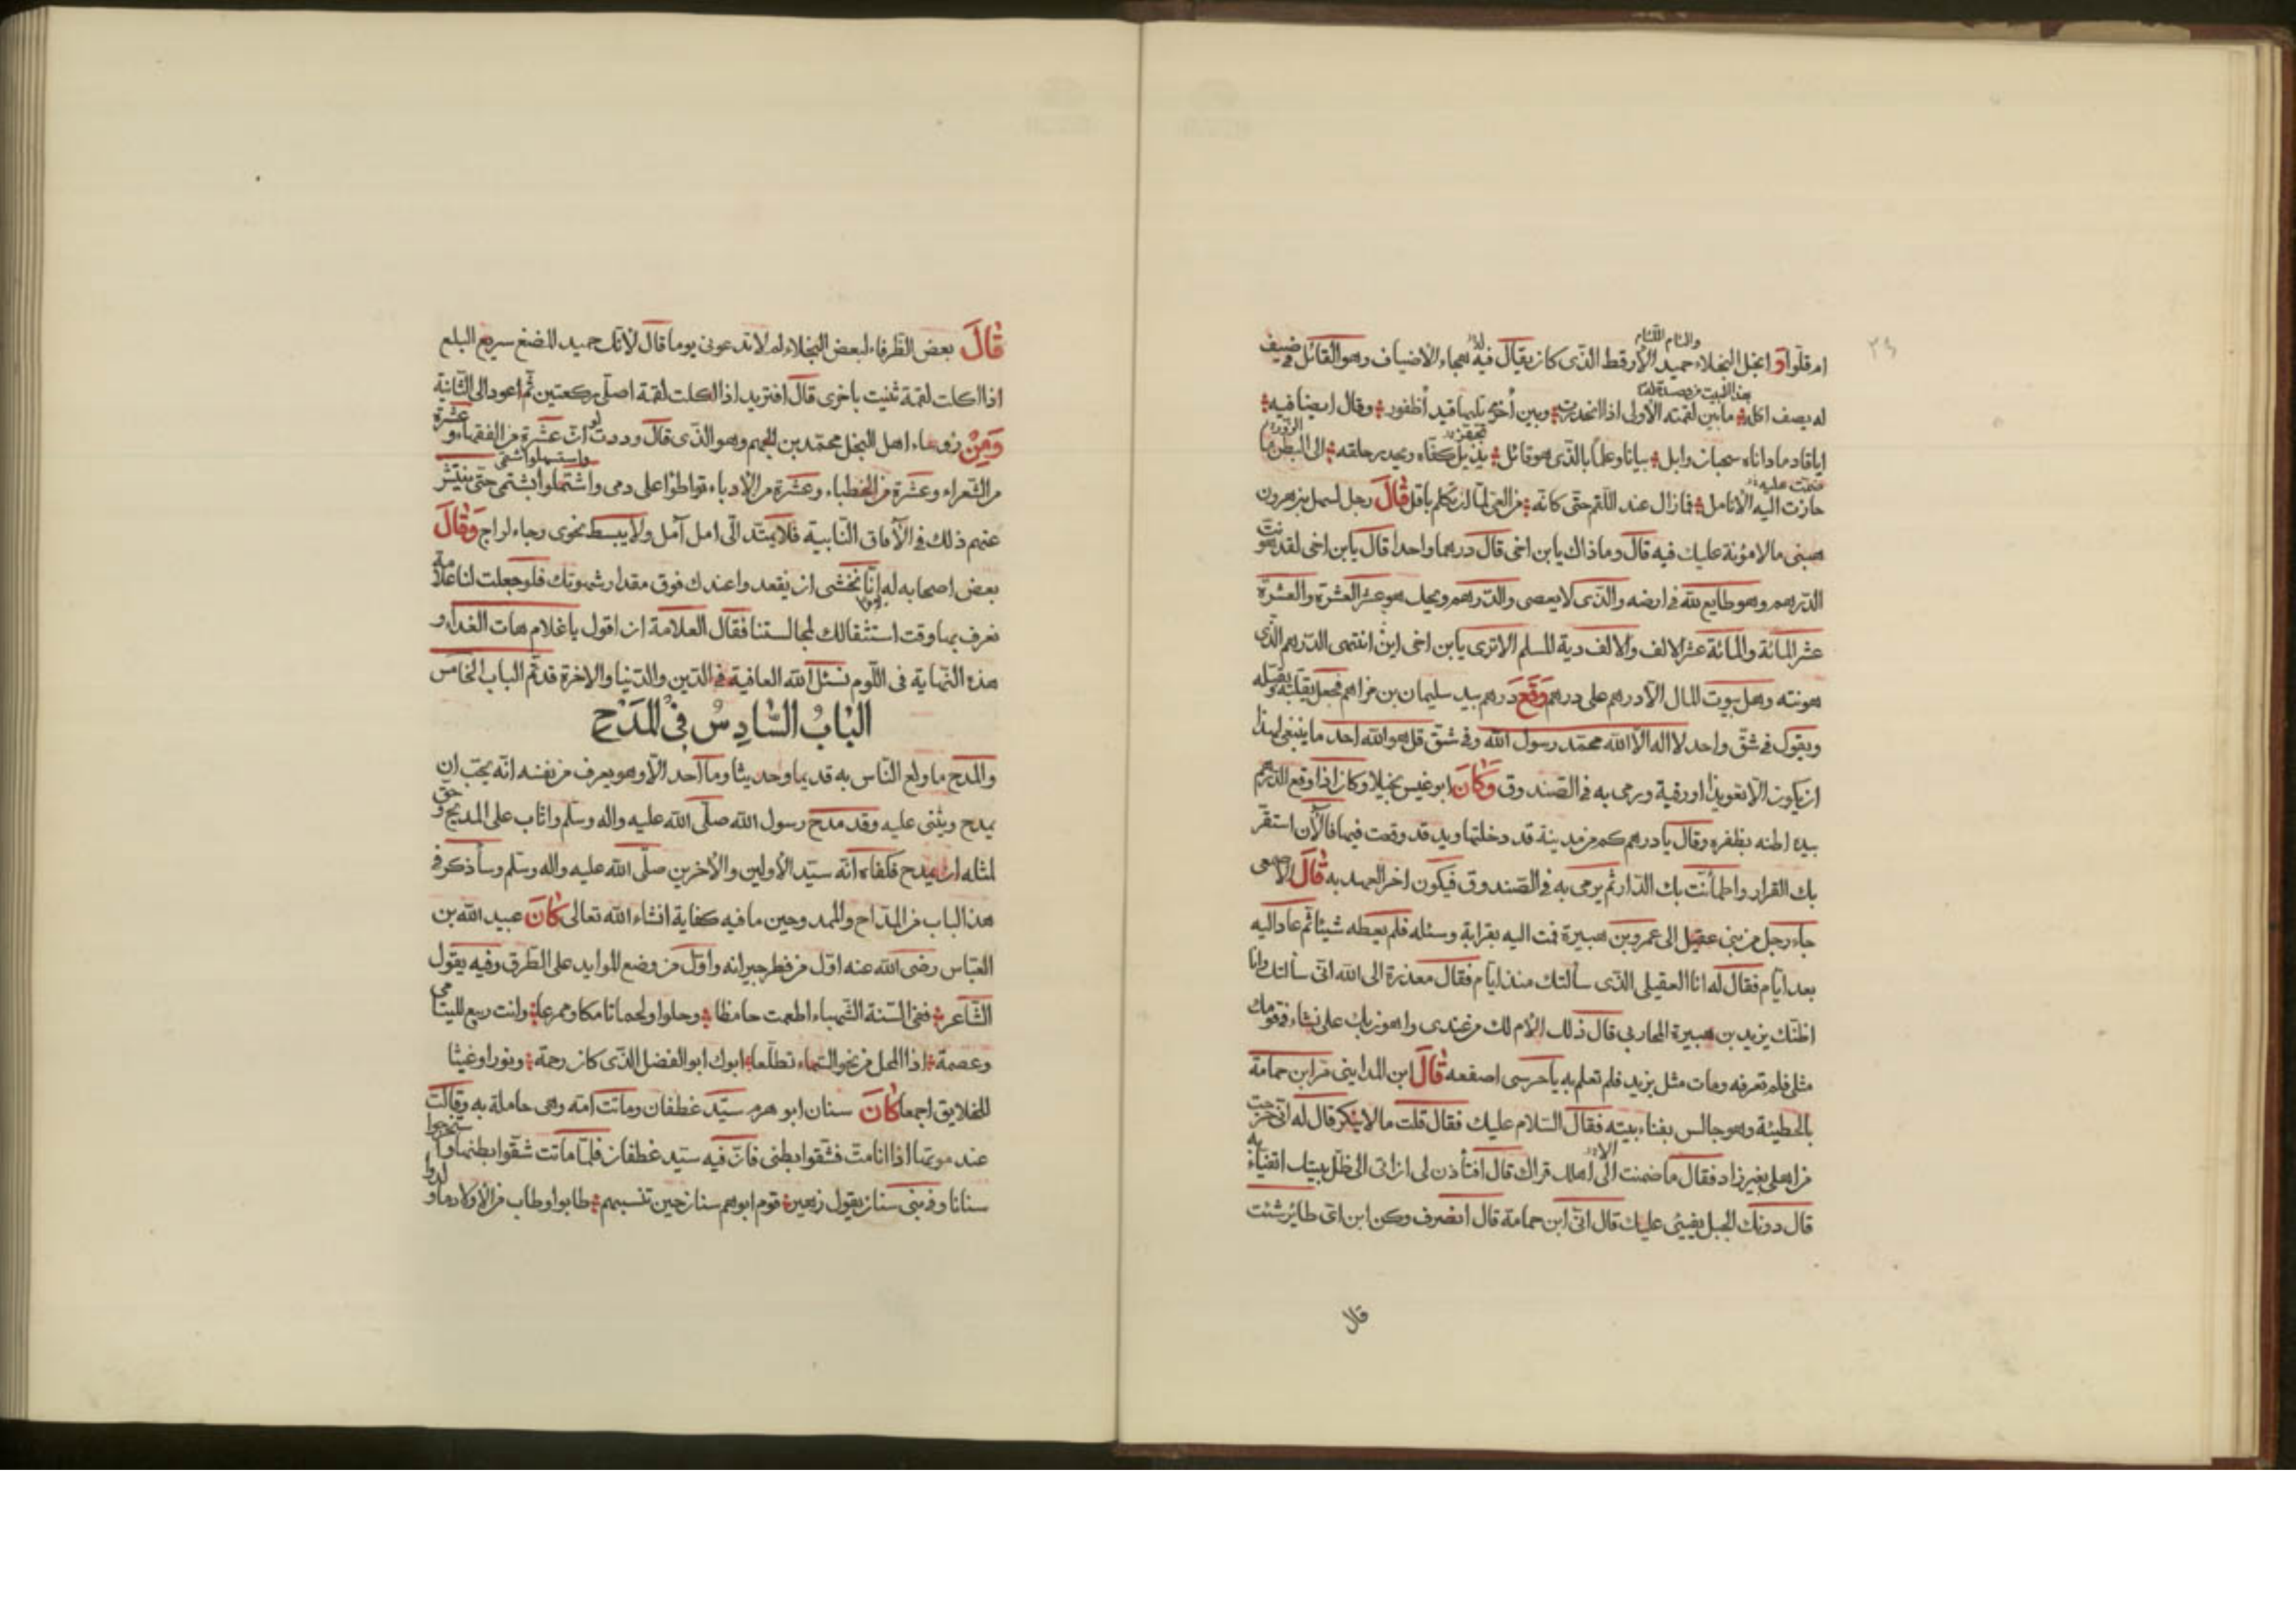 والئام اللئام
ام قلّوا وابخل البخلاء حميد الارقط الذى كان يقال فيه هجاء الاضياف وهو القائل فى ضيف
له يصف اكله ما بين لقمته الاولى اذا انحدرت وبين أخرى تليها قيد أظفور وقال ايضا فيه
اتانا وما داناه سحبان وابل بيانا وعلما بالذى هو قائل كفّاه ويحدر حلقه الى البطن ما
حازت اليه الانامل فما زال عند اللقم حتى كانه من العى لما ان تكلم باقل قال رجل لسهل بن هرون
هبنى مالا مؤنة عليك فيه قال وما ذاك يا بن اخى قال درهما واحدا قال يا بن اخى لقد هونت
الدرهم وهو طايع لله فى ارضه والذى لا يعصى والدرهم ويحك هو عشر العشرة والعشرة
عشر المائة والمائة عشر الالف والالف دية المسلم الا ترى يا بن اخى اين انتهى الدرهم الذى
هونته وهل بيوت المال الا درهم على درهم وقع درهم بيد سليمان بن مزاحم فجعل يقلبه ويقبله
ويقول فى شقّ واحد لا اله الا الله محمد رسول الله وفى شقّ قل هو الله احد ما ينبغى لهذا
ان يكون الا تعويذا او رقية ويرمى به فى الصندوق وكان ابو عيس بخيلا وكان اذا وقع الدرهم
بيده اطنه بظفره وقال يا درهم كم من مدينة قد دخلتها ويد قد وقعت فيها فالآن استقرّ
بك القرار واطمأنت بك الدار ثم يرمى به فى الصندوق فيكون اخر العهد به قال الاصمعى
جاء رجل من بنى عقيل الى عمرو بن هبيرة فمت اليه بقرابة وسئله فلم يعطه شيئا ثم عاد اليه
بعد ايام فقال له انا العقيلى الذى سألتك منذ ايام فقال معذرة الى الله انى سألتك وانا
اظنك يزيد بن هبيرة المحاربى قال ذلك الأم لك عندى واهون بك على نشاء فى قومك
مثلى فلم تعرفه ومات مثل يزيد فلم تعلم به يا حرسى اصفعه قال ابن المداينى مرّ ابن حمامة
بالحطيئة وهو جالس بفناء بيته فقال السلام عليك فقال قلت مالا ينكر قال له انى خرجت
من اهلى بغير زاد فقال ما ضمنت الى اهلك قراك قال افتأذن لى ان اتى الى ظل بيتك اتفيأ به
قال دونك الجبل يفيئ عليك قال انى ابن حمامة قال انصرف وكن ابن اى طاير شئت
قال
قال بعض الظرفاء لبعض البخلاء لم لا تدعونى يوما قال لأنك جيد المضغ سريع البلع
اذا اكلت لقمة ثنيت باخرى قال افتريد اذا اكلت لقمة اصلّى ركعتين ثم اعود الى الثانية
ومن رؤساء اهل البخل محمد بن الجهم وهو الذى قال وددت لو ان عشرة من الفقهاء وعشرة
من الشعراء وعشرة من الخطباء وعشرة من الادباء تواطؤا على ذمى واشتملوا بشتمى حتى ينتشر
عنهم ذلك فى الآفاق النابية فلا يمتد الى امل آمل ولا يبسط نحوى رجاء لراج وقال
بعض اصحابه له انا نخشى ان نقعد عندك فوق مقدار شهوتك فلو جعلت لنا علامة
نعرف بها وقت استثقالك لمجالستنا فقال العلامة ان اقول يا غلام هات الغداء و
هذه النهاية فى اللوم نسئل الله العافية فى الدين والدنيا والاخرة قد تم الباب الخامس
الباب السادس فى المدح
والمدح ما ولع الناس به قديما وحديثا وما احد الا وهو يعرف من نفسه انه يحب ان
يمدح ويثنى عليه وقد مدح رسول الله صلى الله عليه واله وسلم واثاب على المديح وحق
لمثله ان يمدح فكفاه انه سيد الاولين والاخرين صلى الله عليه واله وسلم وسأذكر فى
هذا الباب من المداح والممدوحين ما فيه كفاية انشاء الله تعالى كان عبيد الله بن
العباس رضى الله عنه اول من فطر جيرانه واول من وضع الموايد على الطرق وفيه يقول
الشاعر ففى السنة الشهباء اطعمت حامظا وحلوا ولحما تامكا وممرعا وانت ربيع لليتامى
وعصمة اذا المحل من نحو السماء تطلعا ابوك ابو الفضل الذى كان رحمة ونورا وغيثا
للخلايق اجمعا كان سنان ابو هرم سيّد غطفان وماتت امه وهى حاملة به وقالت
عند موتها اذا انا متّ فشقوا بطنى فان فيه سيد غطفان فلما ماتت شقوا بطنها واستخرجوا
سنانا وفى بنى سنان يقول زهير قوم ابوهم سنان حين تنسبهم طابوا وطاب من الاولاد ما ولدوا